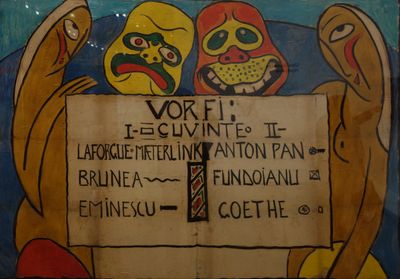 VOR FI:
I-a CUVINTE II-a
LAFORGUE-MÆTERLINK ANTON PAN
BRUNEA FUNDOIANU
EMINESCU GOETHE